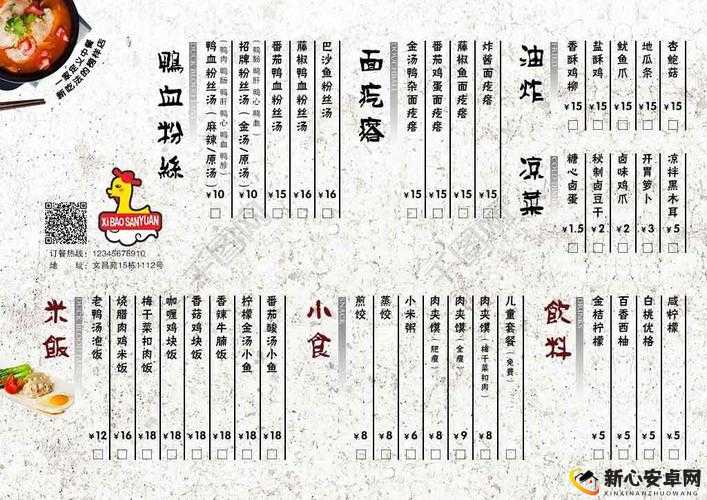 鴨血粉絲
鸭血粉丝汤（麻辣/原汤） ¥10
招牌粉丝汤（金汤/原汤） ¥10
番茄鸭血粉丝汤 ¥15
藤椒鸭血粉丝汤 ¥16
巴沙鱼粉丝汤 ¥16
面疙瘩
金汤鸭杂面疙瘩 ¥15
番茄鸡蛋面疙瘩 ¥15
藤椒鱼面疙瘩 ¥15
炸酱面疙瘩 ¥15
油炸
香酥鸡柳 ¥15
盐酥鸡 ¥15
鱿鱼爪 ¥15
地瓜条 ¥15
杏鲍菇 ¥15
凉菜
糖心卤蛋 ¥1.5
秘制卤豆干 ¥2
卤味鸡爪 ¥2
开胃萝卜 ¥3
凉拌黑木耳 ¥5
XI BAO SANYUAN
订餐热线：12345678910
地 址：文昌苑15栋1112号
米飯
老鸭汤泡饭 ¥12
烧腊肉鸡米饭 ¥16
梅干菜扣肉饭 ¥18
咖喱鸡块饭 ¥18
香菇鸡块饭 ¥18
香辣牛腩饭 ¥18
柠檬金汤小鱼 ¥18
番茄酸汤小鱼 ¥18
小食
煎饺 ¥8
蒸饺 ¥8
小米粥 ¥6
肉夹馍（肥瘦） ¥8
肉夹馍（全瘦） ¥9
肉夹馍（梅干菜扣肉） ¥8
儿童套餐（免费）
飲料
金桔柠檬 ¥5
百香西柚 ¥5
白桃优格 ¥5
咸柠檬 ¥5
新心安卓网
XINXINANZHUOWANG